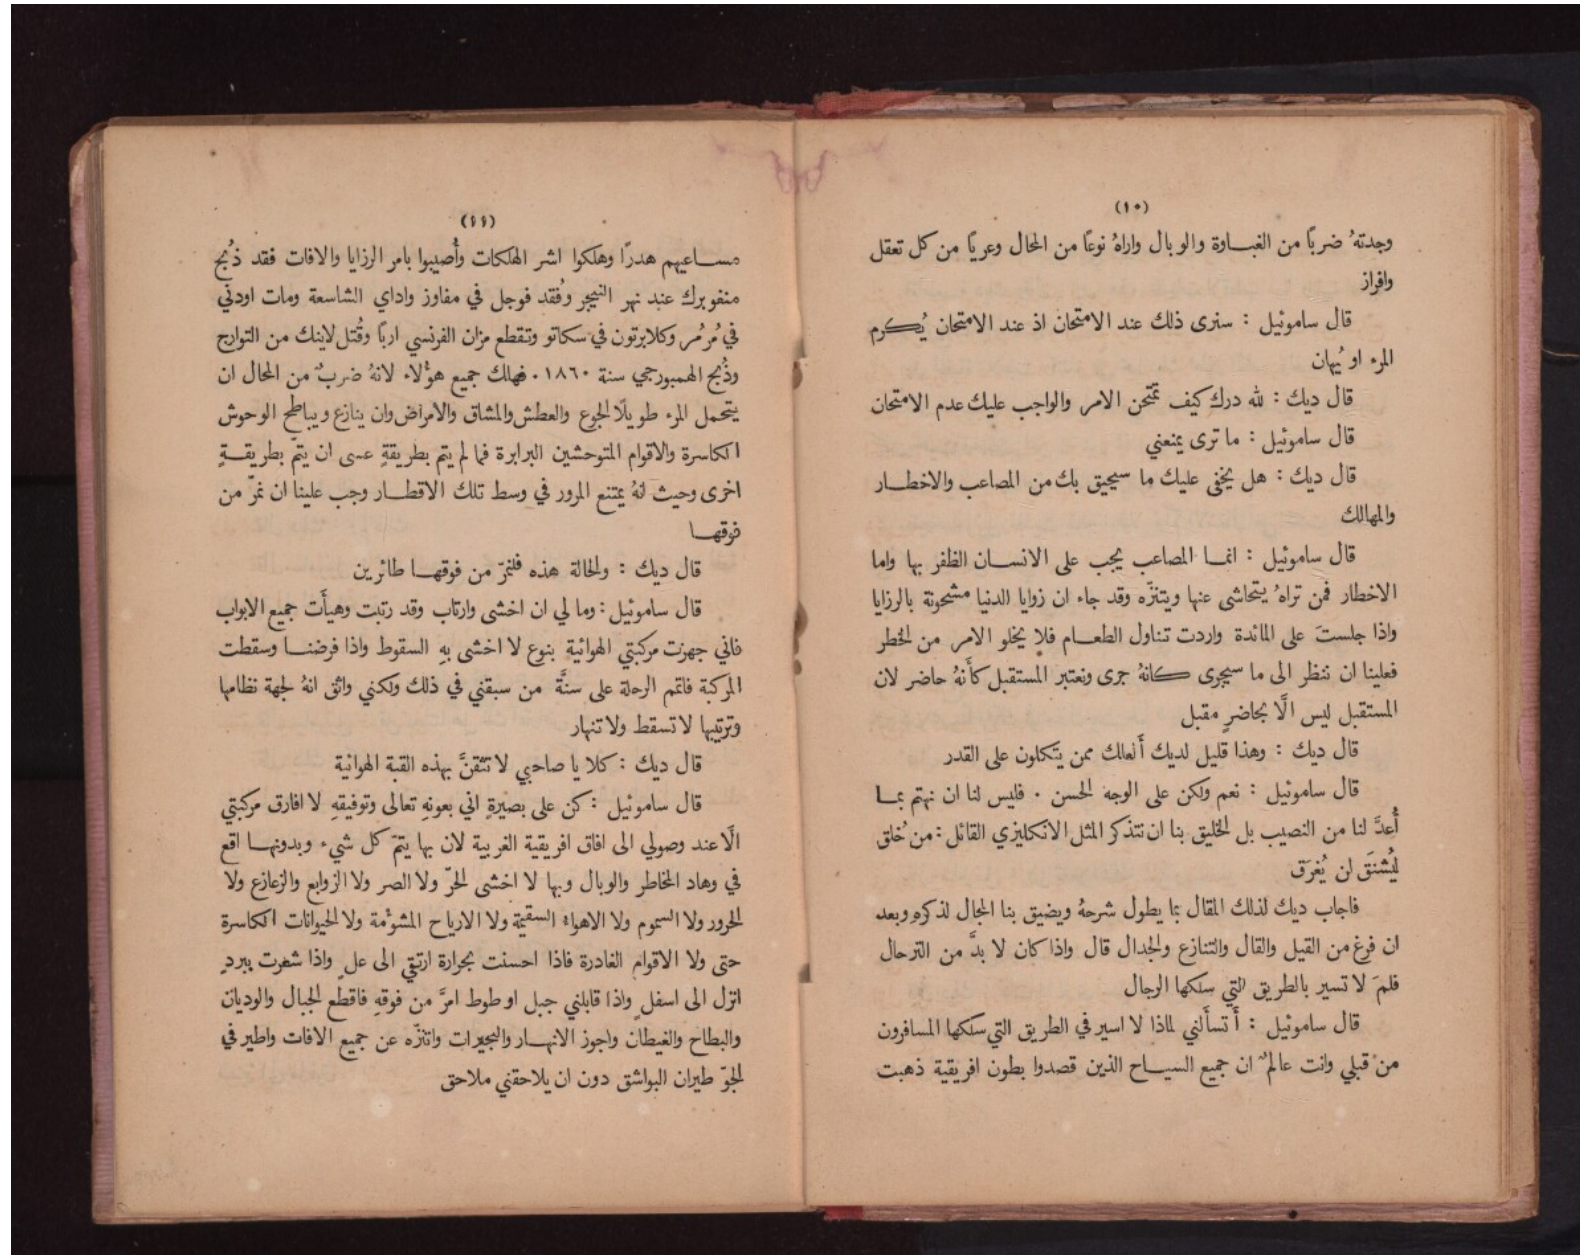 (١٠)
وجدتهُ ضربًا من الغبـاوة والوبال واراهُ نوعًا من المحال وعريًا من كل تعقل
وافراز
قال ساموئيل : سنرى ذلك عند الامتحان اذ عند الامتحان يُكرم
المرء او يُهان
قال ديك : لله درك كيف تمتحن الامر والواجب عليك عدم الامتحان
قال ساموئيل : ما ترى يمنعني
قال ديك : هل يخفى عليك ما سيحيق بك من المصاعب والاخطـار
والمهالك
قال ساموئيل : انمـا المصاعب يجب على الانسـان الظفر بها واما
الاخطار فمن تراهُ يتحاشى عنها ويتنزَّه وقد جاء ان زوايا الدنيا مشحونة بالرزايا
واذا جلستَ على المائدة واردت تناول الطعـام فلا يخلو الامر من الخطر
فعلينا ان ننظر الى ما سيجرى كانهُ جرى ونعتبر المستقبل كأنهُ حاضر لان
المستقبل ليس الَّا بحاضرٍ مقبل
قال ديك : وهذا قليل لديك أَلعلك ممن يتَّكلون على القدر
قال ساموئيل : نعم ولكن على الوجه الحسن . فليس لنا ان نهتم بمـا
أُعدَّ لنا من النصيب بل الخليق بنا ان نتذكر المثل الانكليزي القائل : من خُلق
ليُشنَق لن يُغرَق
فاجاب ديك لذلك المقال بما يطول شرحهُ ويضيق بنا المجال لذكرهِ وبعد
ان فرغ من القيل والقال والتنازع والجدال قال واذا كان لا بدَّ من الترحال
فلمَ لا تسير بالطريق التي سلكها الرجال
قال ساموئيل : أَتسأَلني لماذا لا اسير في الطريق التي سلكها المسافرون
من قبلي وانت عالمٌ ان جميع السيـاح الذين قصدوا بطون افريقية ذهبت
(١١)
مسـاعيهم هدرًا وهلكوا اشر الهلكات وأُصيبوا بامر الرزايا والافات فقد ذُبح
منفو برك عند نهر النيجر وفُقد فوجل في مفاوز واداي الشاسعة ومات اودني
في مُرمُر وكلابرتون في سكاتو وتقطع مزان الفرنسي اربًا وقُتل لاينك من التوارج
وذُبح الهمبورجي سنة ١٨٦٠ . فهلك جميع هؤلاء لانهُ ضربٌ من المحال ان
يتحمل المرء طويلًا الجوع والعطش والمشاق والامراض وان ينازع ويباطح الوحوش
الكاسرة والاقوام المتوحشين البرابرة فما لم يتم بطريقةٍ عسى ان يتمَّ بطريقـةٍ
اخرى وحيث انهُ يمتنع المرور في وسط تلك الاقطـار وجب علينا ان نمرَّ من
فوقهـا
قال ديك : والحالة هذه فلنمرّ من فوقهـا طائرين
قال ساموئيل : وما لي ان اخشى وارتاب وقد رتبت وهيأَت جميع الابواب
فاني جهزت مركبتي الهوائية بنوع لا اخشى بهِ السقوط واذا فرضنـا وسقطت
المركبة فاتمم الرحلة على سنَّة من سبقني في ذلك ولكني واثق انهُ لجهة نظامها
وترتيبها لا تسقط ولا تنهار
قال ديك : كلا يا صاحبي لا تثقنَّ بهذه القبة الهوائية
قال ساموئيل : كن على بصيرةٍ اني بعونهِ تعالى وتوفيقهِ لا افارق مركبتي
الَّا عند وصولي الى افاق افريقية الغربية لان بها يتمّ كل شيء وبدونهـا اقع
في وهاد المخاطر والوبال وبها لا اخشى الحرّ ولا الصر ولا الزوابع والزعازع ولا
الحرور ولا السموم ولا الاهواء السقيمة ولا الارياح المشؤمة ولا الحيوانات الكاسرة
حتى ولا الاقوام الغادرة فاذا احسنت بحرارة ارتقي الى علٍ واذا شعرت ببردٍ
انزل الى اسفل واذا قابلني جبل او طوط امرَّ من فوقهِ فاقطع الجبال والوديان
والبطاح والغيطان واجوز الانهـار والبحيرات واتنزّه عن جميع الافات واطير في
الجوّ طيران البواشق دون ان يلاحقني ملاحق